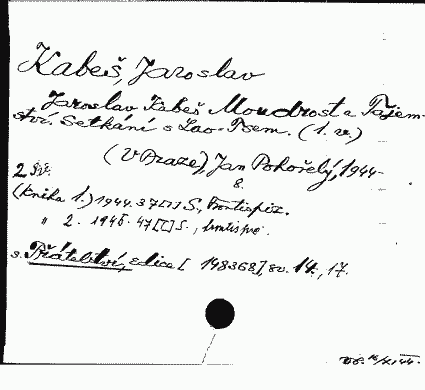 Kabeš, Jaroslav
Jaroslav Kabeš Moudrost a Tajem-
ství. Setkání s Lao-Tsem. (1. v.)
(V Praze), Jan Pohořelý, 1944-
8.
2 sv.
(Kniha 1.) 1944. 37[1] S., Frontispiz.
" 2. 1946. 47[1] S., frontispis.
s. Přátelství, edice [148368], sv. 14., 17.